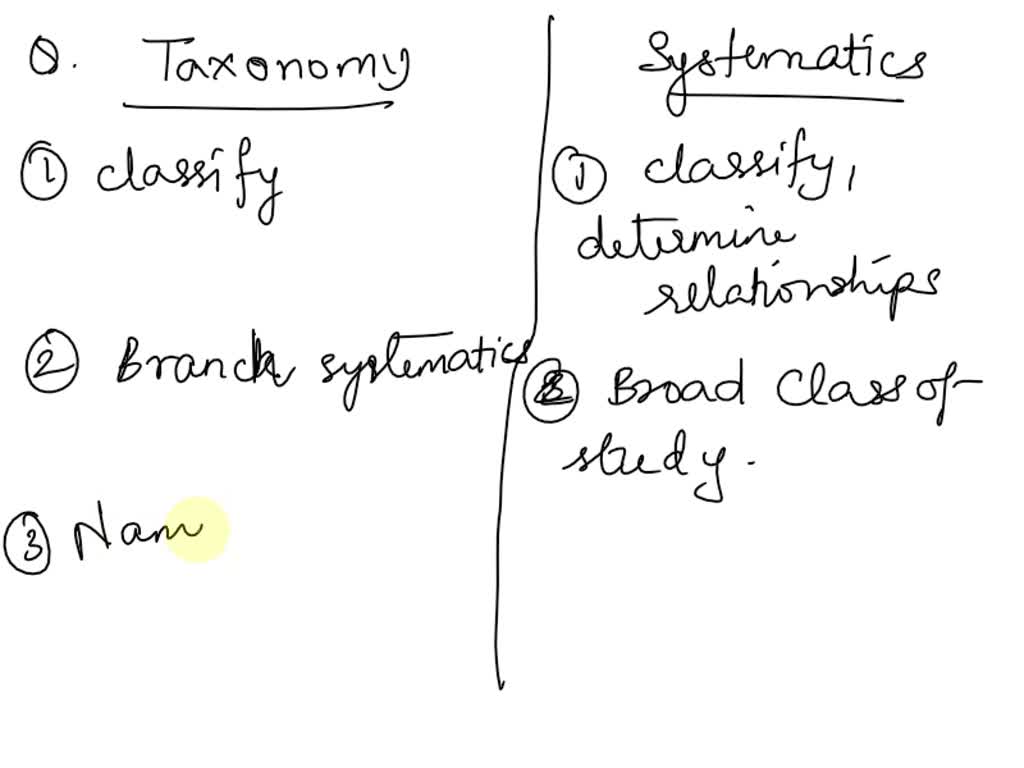 Q. Taxonomy
① classify
② Branch systematics
③ Nam
Systematics
① classify,
determine
relationships
② Broad class of
study.